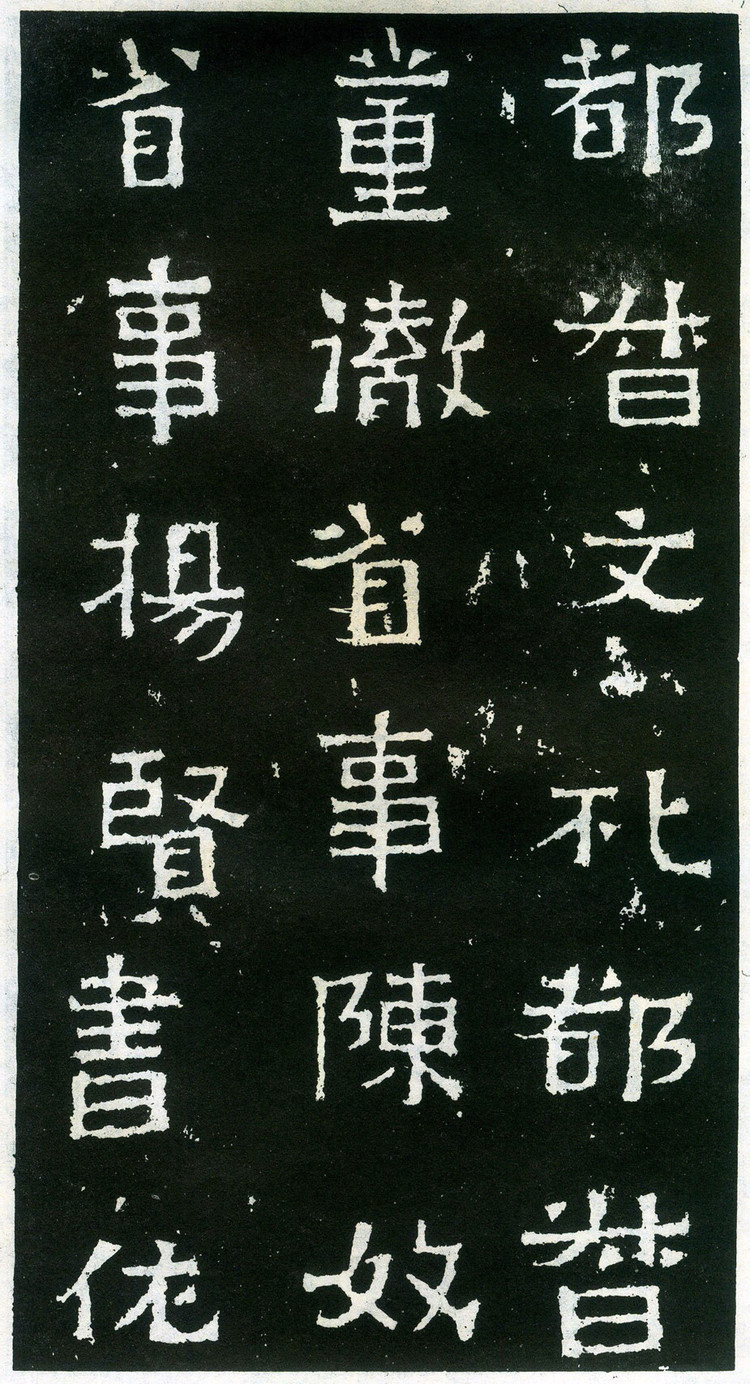 都督文礼都督
董徹省事陳奴
省事楊賢書佐